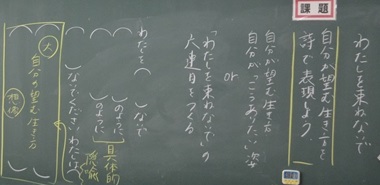 わたしを束ねないで
課題
自分が望む生き方を
詩で表現しよう
自分が望む生き方
自分が「こうありたい」姿
or
「わたしを束ねないで」の
六連目をつくる
わたしを（　）ないで
（　）のように
（　）のように
具体的
比喩
（　）なでください わたしは（　）
人
自分の望む生き方